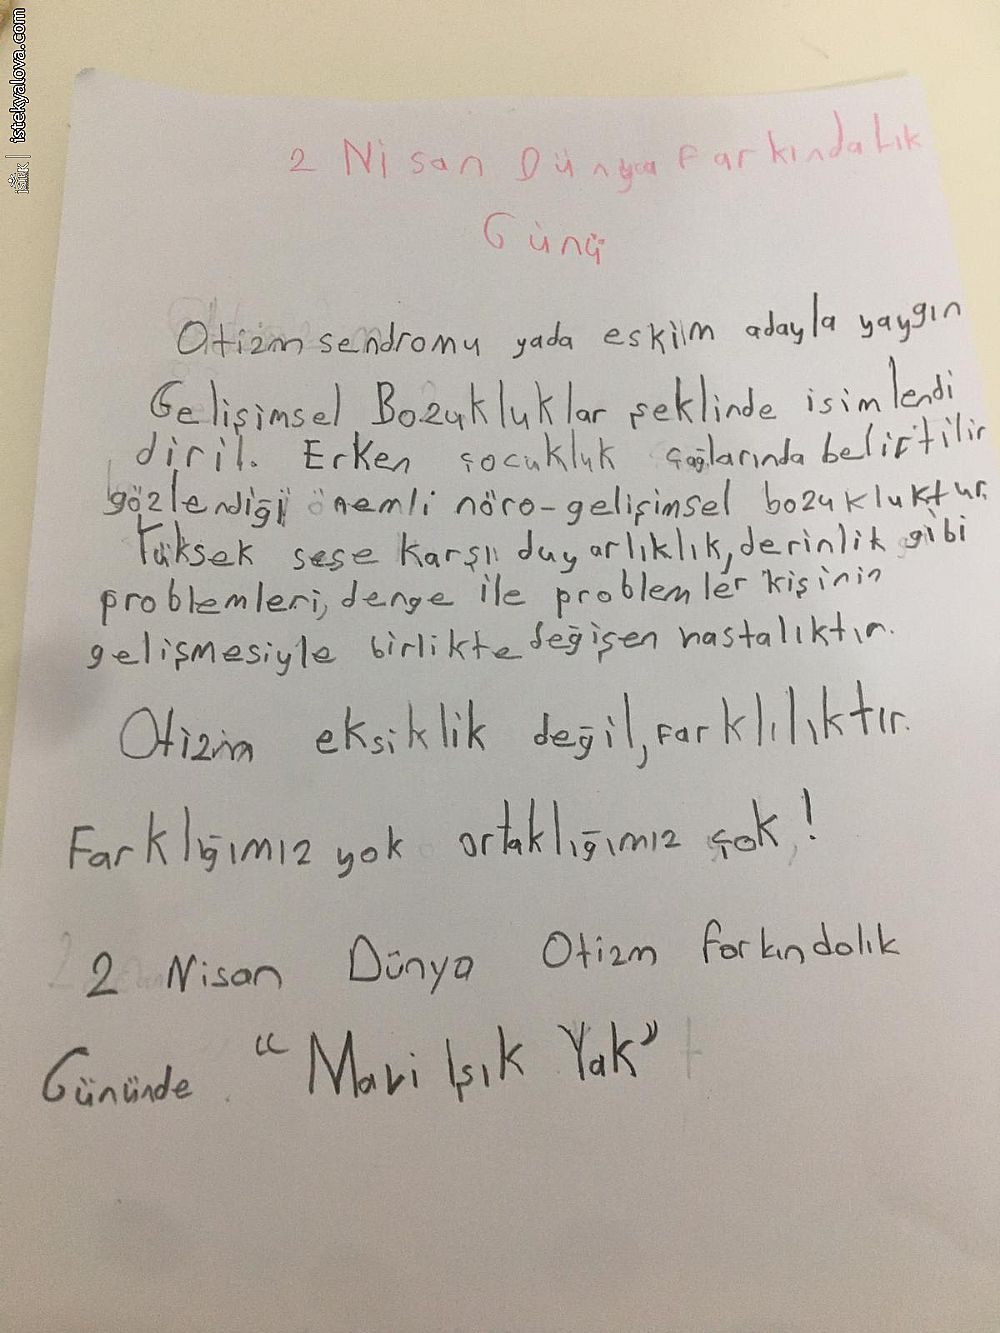 istekyalova.com
2 Nisan Dünya Farkındalık
Günü
Otizm sendromu yada eskiim adayla yaygın
Gelişimsel Bozukluklar şeklinde isimlendi
diril. Erken çocukluk çağlarında belirtilir
gözlendiği önemli nöro-gelişimsel bozukluktur.
Yüksek sese karşı duyarlıklık, derinlik gibi
problemleri, denge ile problemler kişinin
gelişmesiyle birlikte değişen hastalıktır.
Otizm eksiklik değil, farklılıktır.
Farklığımız yok ortaklığımız çok!
2 Nisan Dünya Otizm farkındalık
Gününde "Mavi Işık Yak"